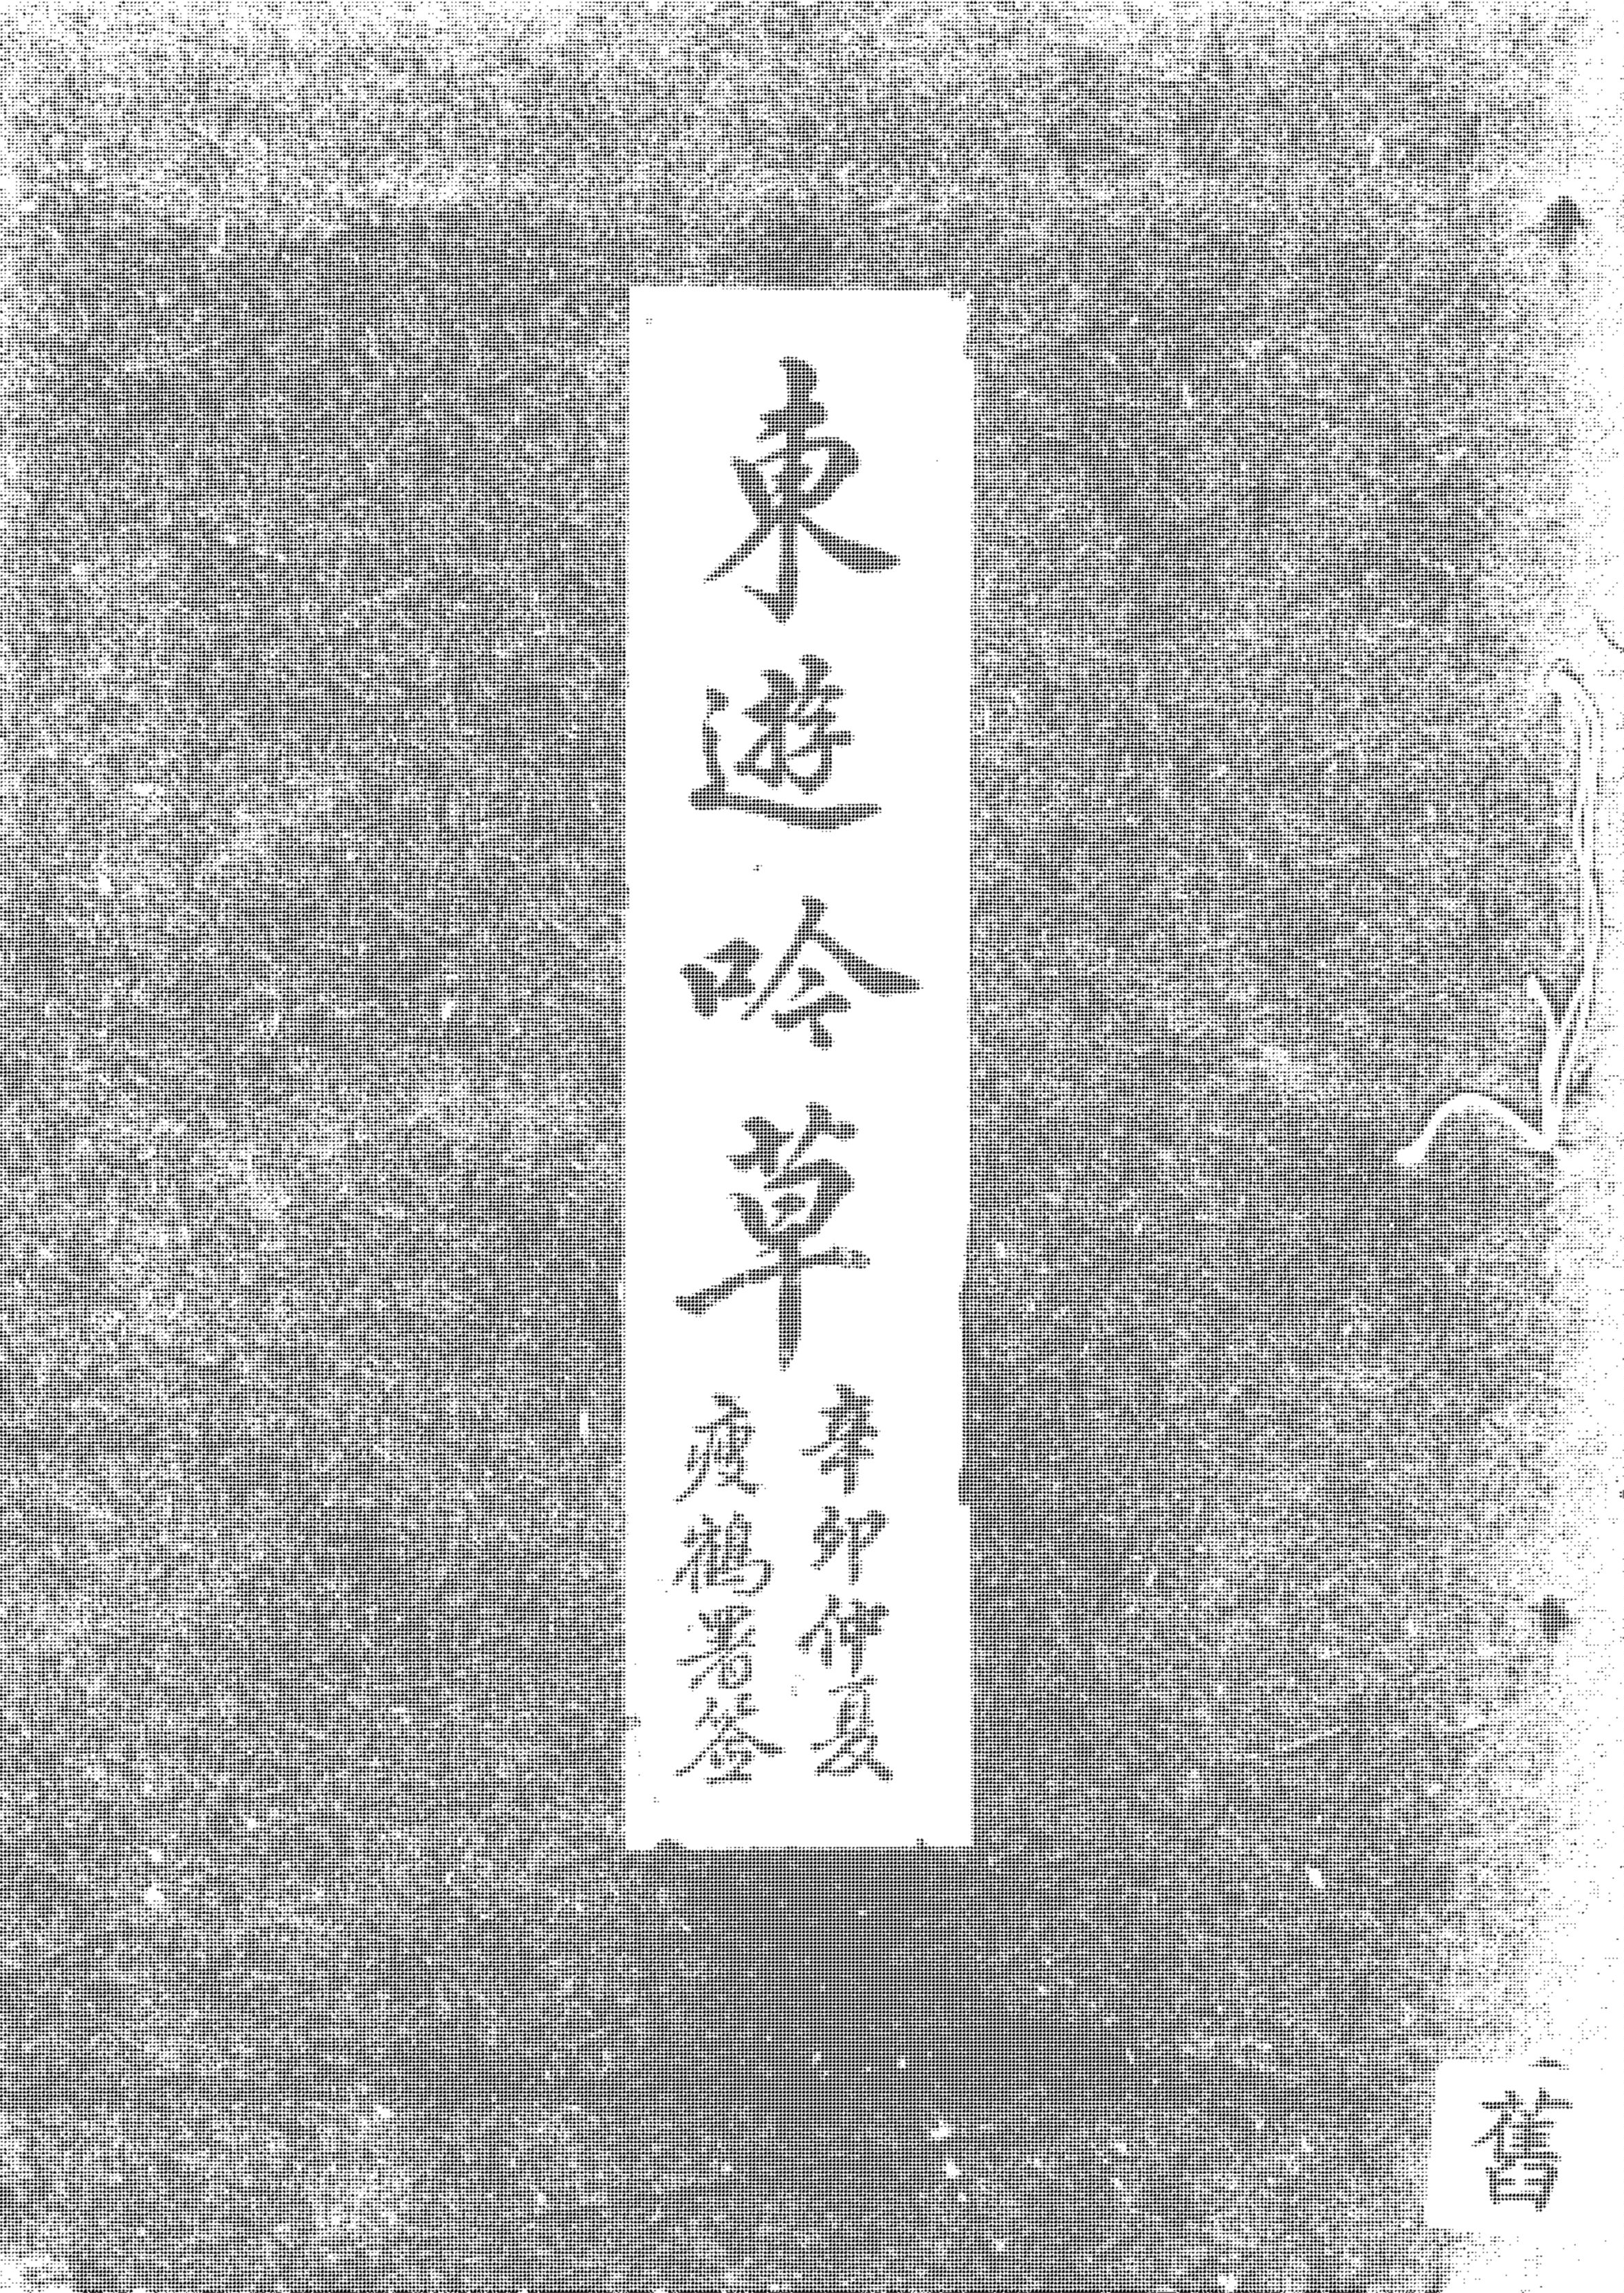 東遊吟草
辛卯仲夏
瘦鶴署簽
舊